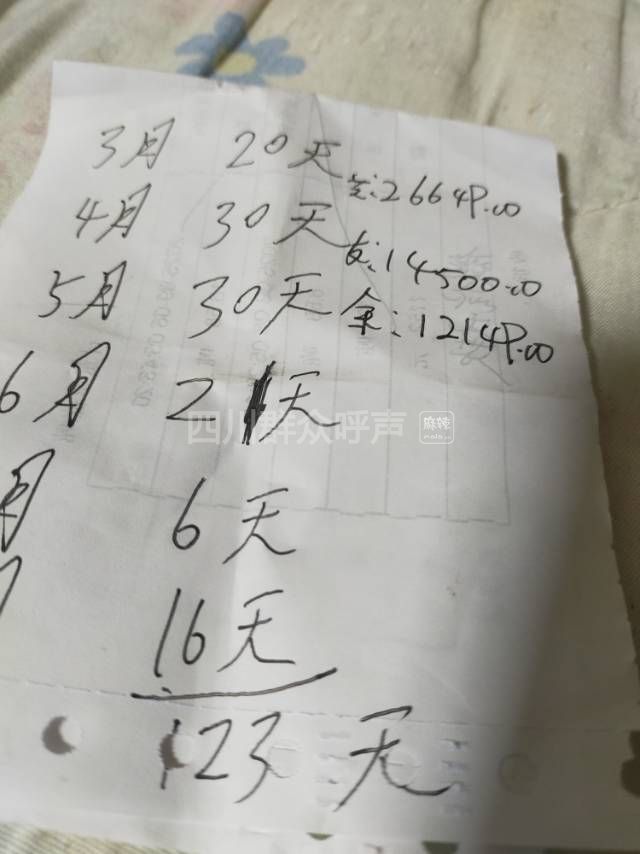 3月 20天 总:26649.00
4月 30天 支:14500.00
5月 30天 余:12149.00
6月 21天
四川群众呼声 麻辣
月 6天
16天
123天